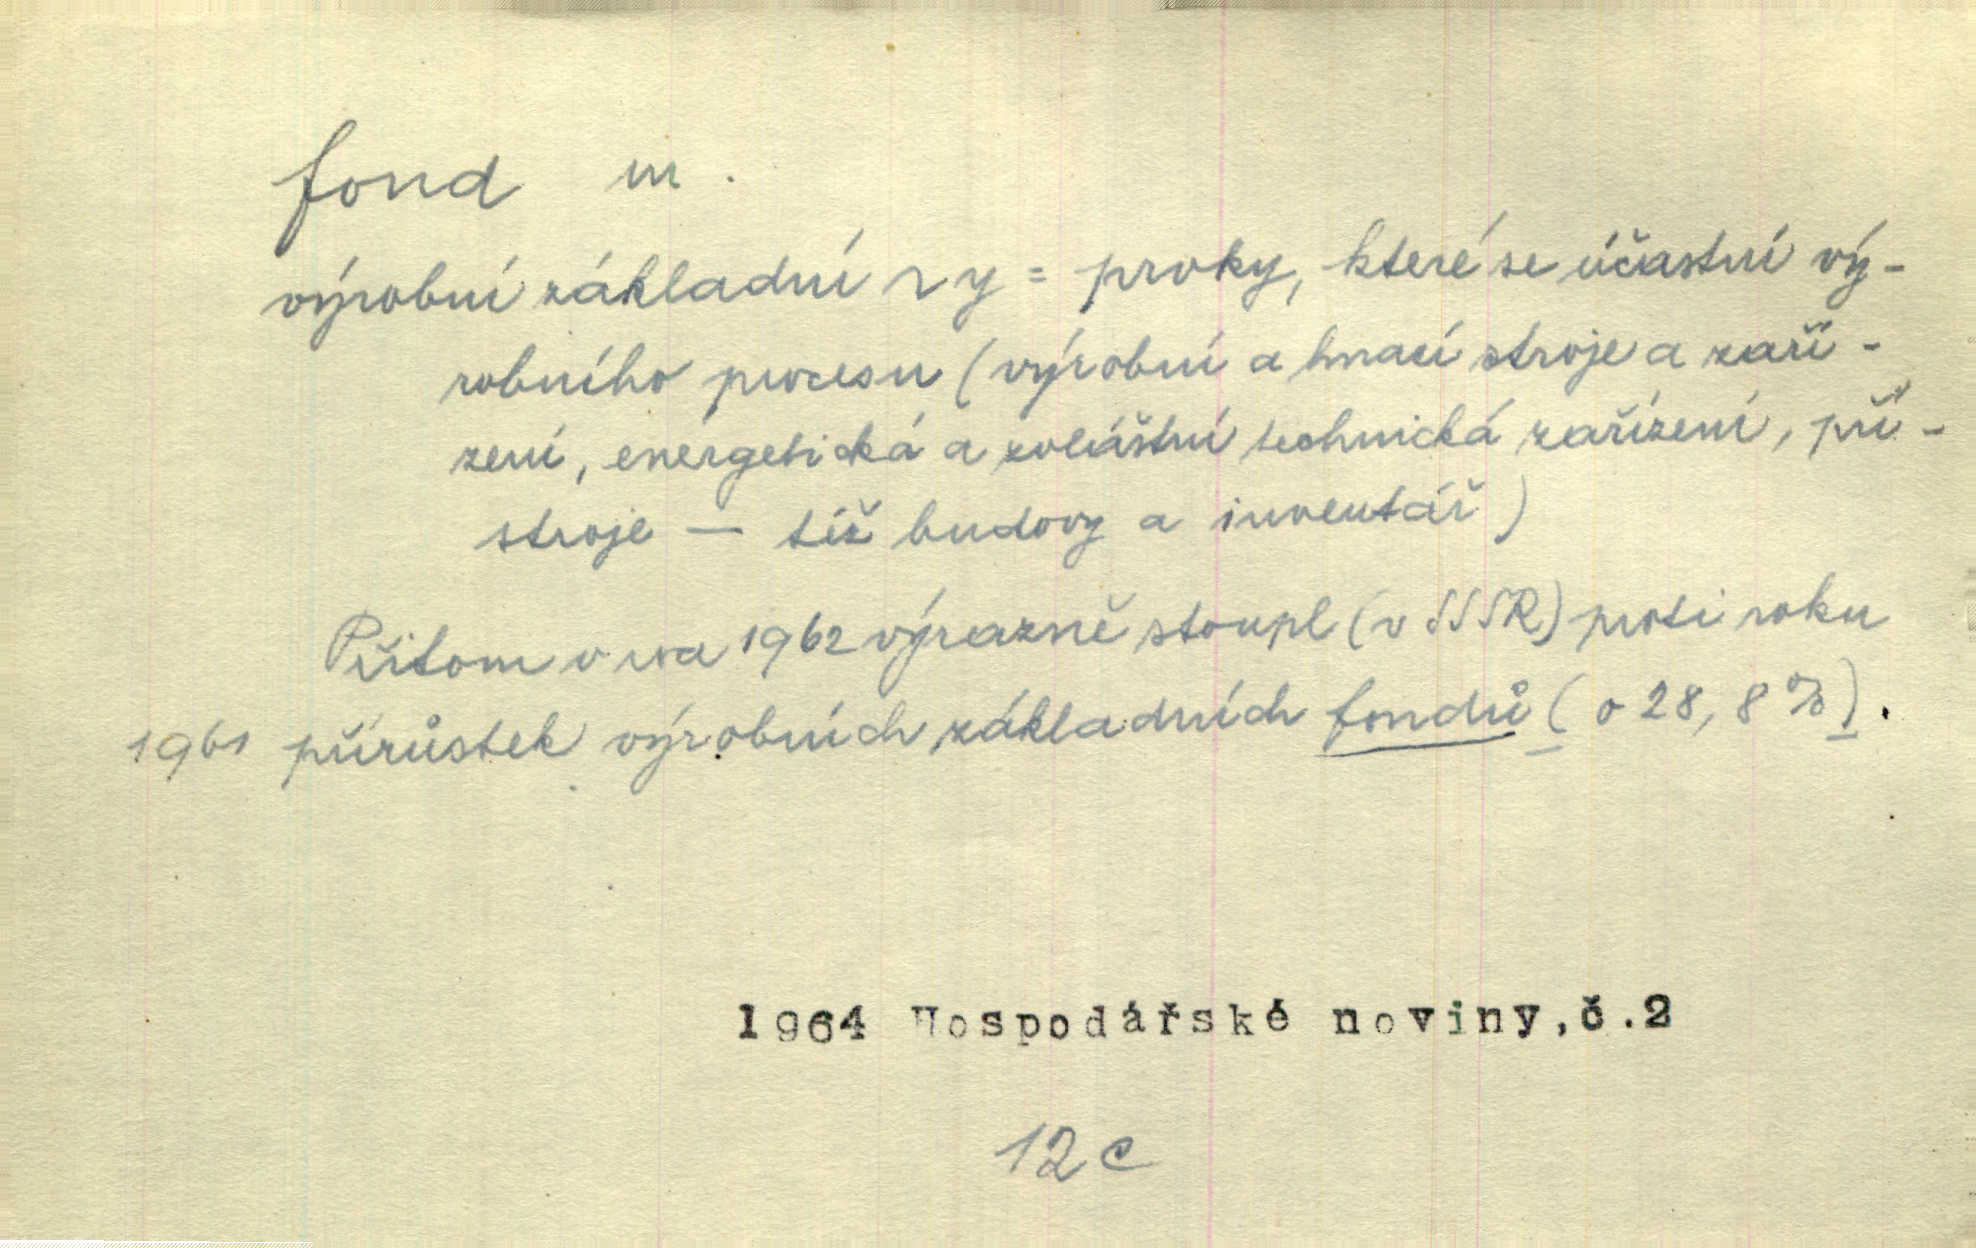 fond m.
výrobní základní ~ y = prvky, které se účastní vý-
robního procesu (výrobní a hnací stroje a zaří-
zení, energetická a zvláštní technická zařízení, pří-
stroje — též budovy a inventář)
Přitom v roce 1962 výrazně stoupl (v SSSR) proti roku
1961 přírůstek výrobních základních fondů (o 28,8%).
1964 Hospodářské noviny,č.2
12c